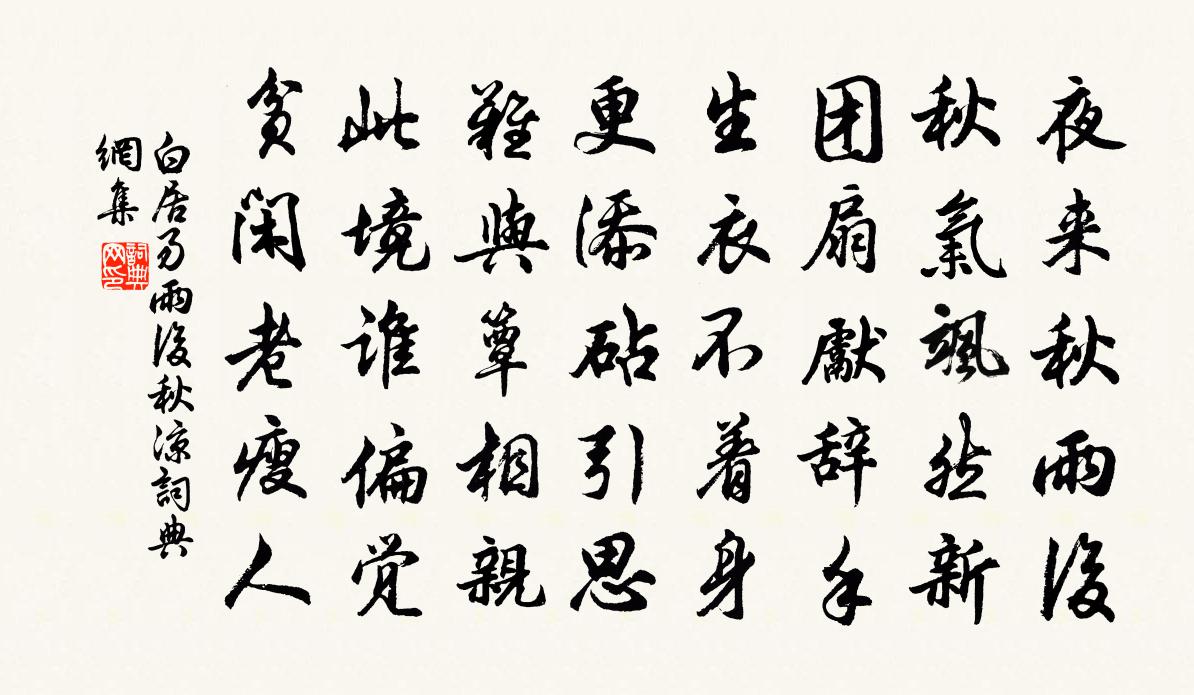 夜来秋雨後
秋氣颯然新
团扇獻辞手
生衣不着身
更添砧引思
難與簟相親
此境谁偏覚
貧閑老瘦人
白居易雨後秋凉詞典
網集
詞典网印